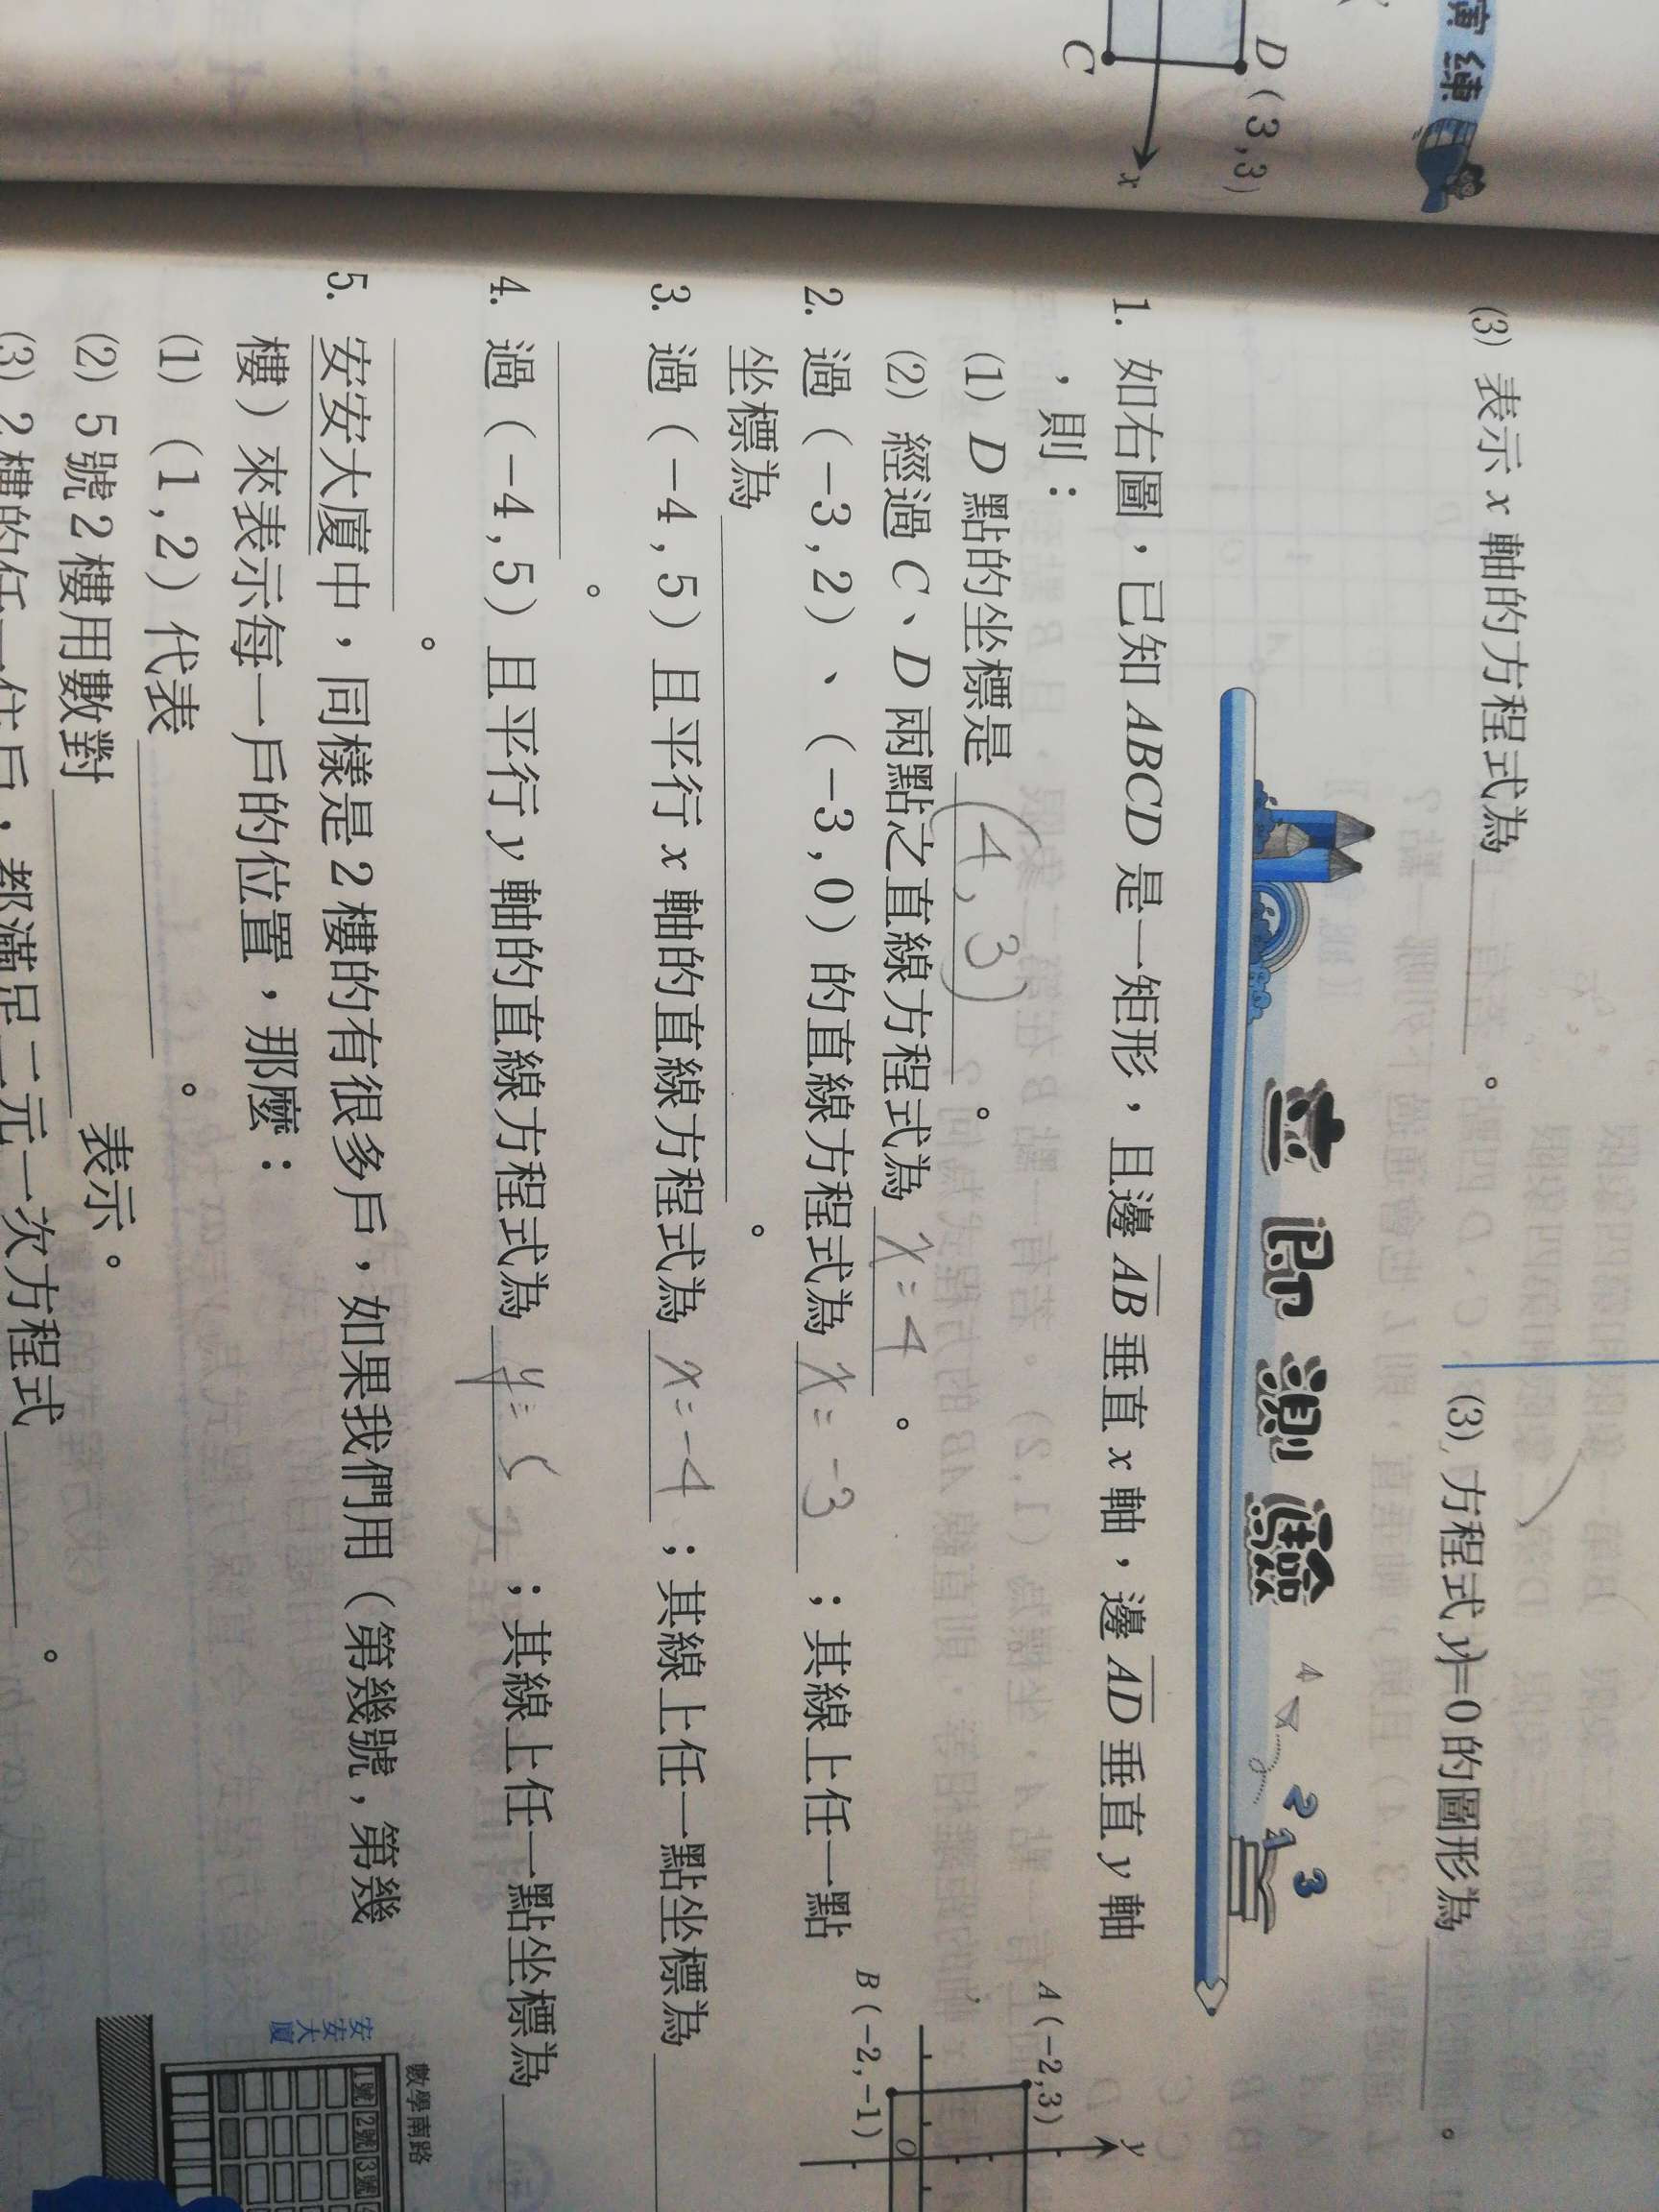 演練
D(3,3)
C
x
(3) 表示 x 軸的方程式為 。
(3) 方程式 y=0 的圖形為 。
立即測驗
4 2 1 3
1. 如右圖，已知 ABCD 是一矩形，且邊 AB 垂直 x 軸，邊 AD 垂直 y 軸
，則：
(1) D 點的坐標是 (4,3) 。
(2) 經過 C、D 兩點之直線方程式為 x=4 。
A(-2,3)
B(-2,-1)
O
y
2. 過 (-3,2)、(-3,0) 的直線方程式為 x=-3 ；其線上任一點
坐標為 。
3. 過 (-4,5) 且平行 x 軸的直線方程式為 x=-4 ；其線上任一點坐標為
。
4. 過 (-4,5) 且平行 y 軸的直線方程式為 y=5 ；其線上任一點坐標為
。
5. 安安大廈中，同樣是2樓的有很多戶，如果我們用 (第幾號,第幾
樓) 來表示每一戶的位置，那麼：
(1) (1,2) 代表 。
(2) 5號2樓用數對 表示。
(3) 2樓的任一住戶，都滿足二元一次方程式 。
數學南路
安安大廈
1號 2號 3號